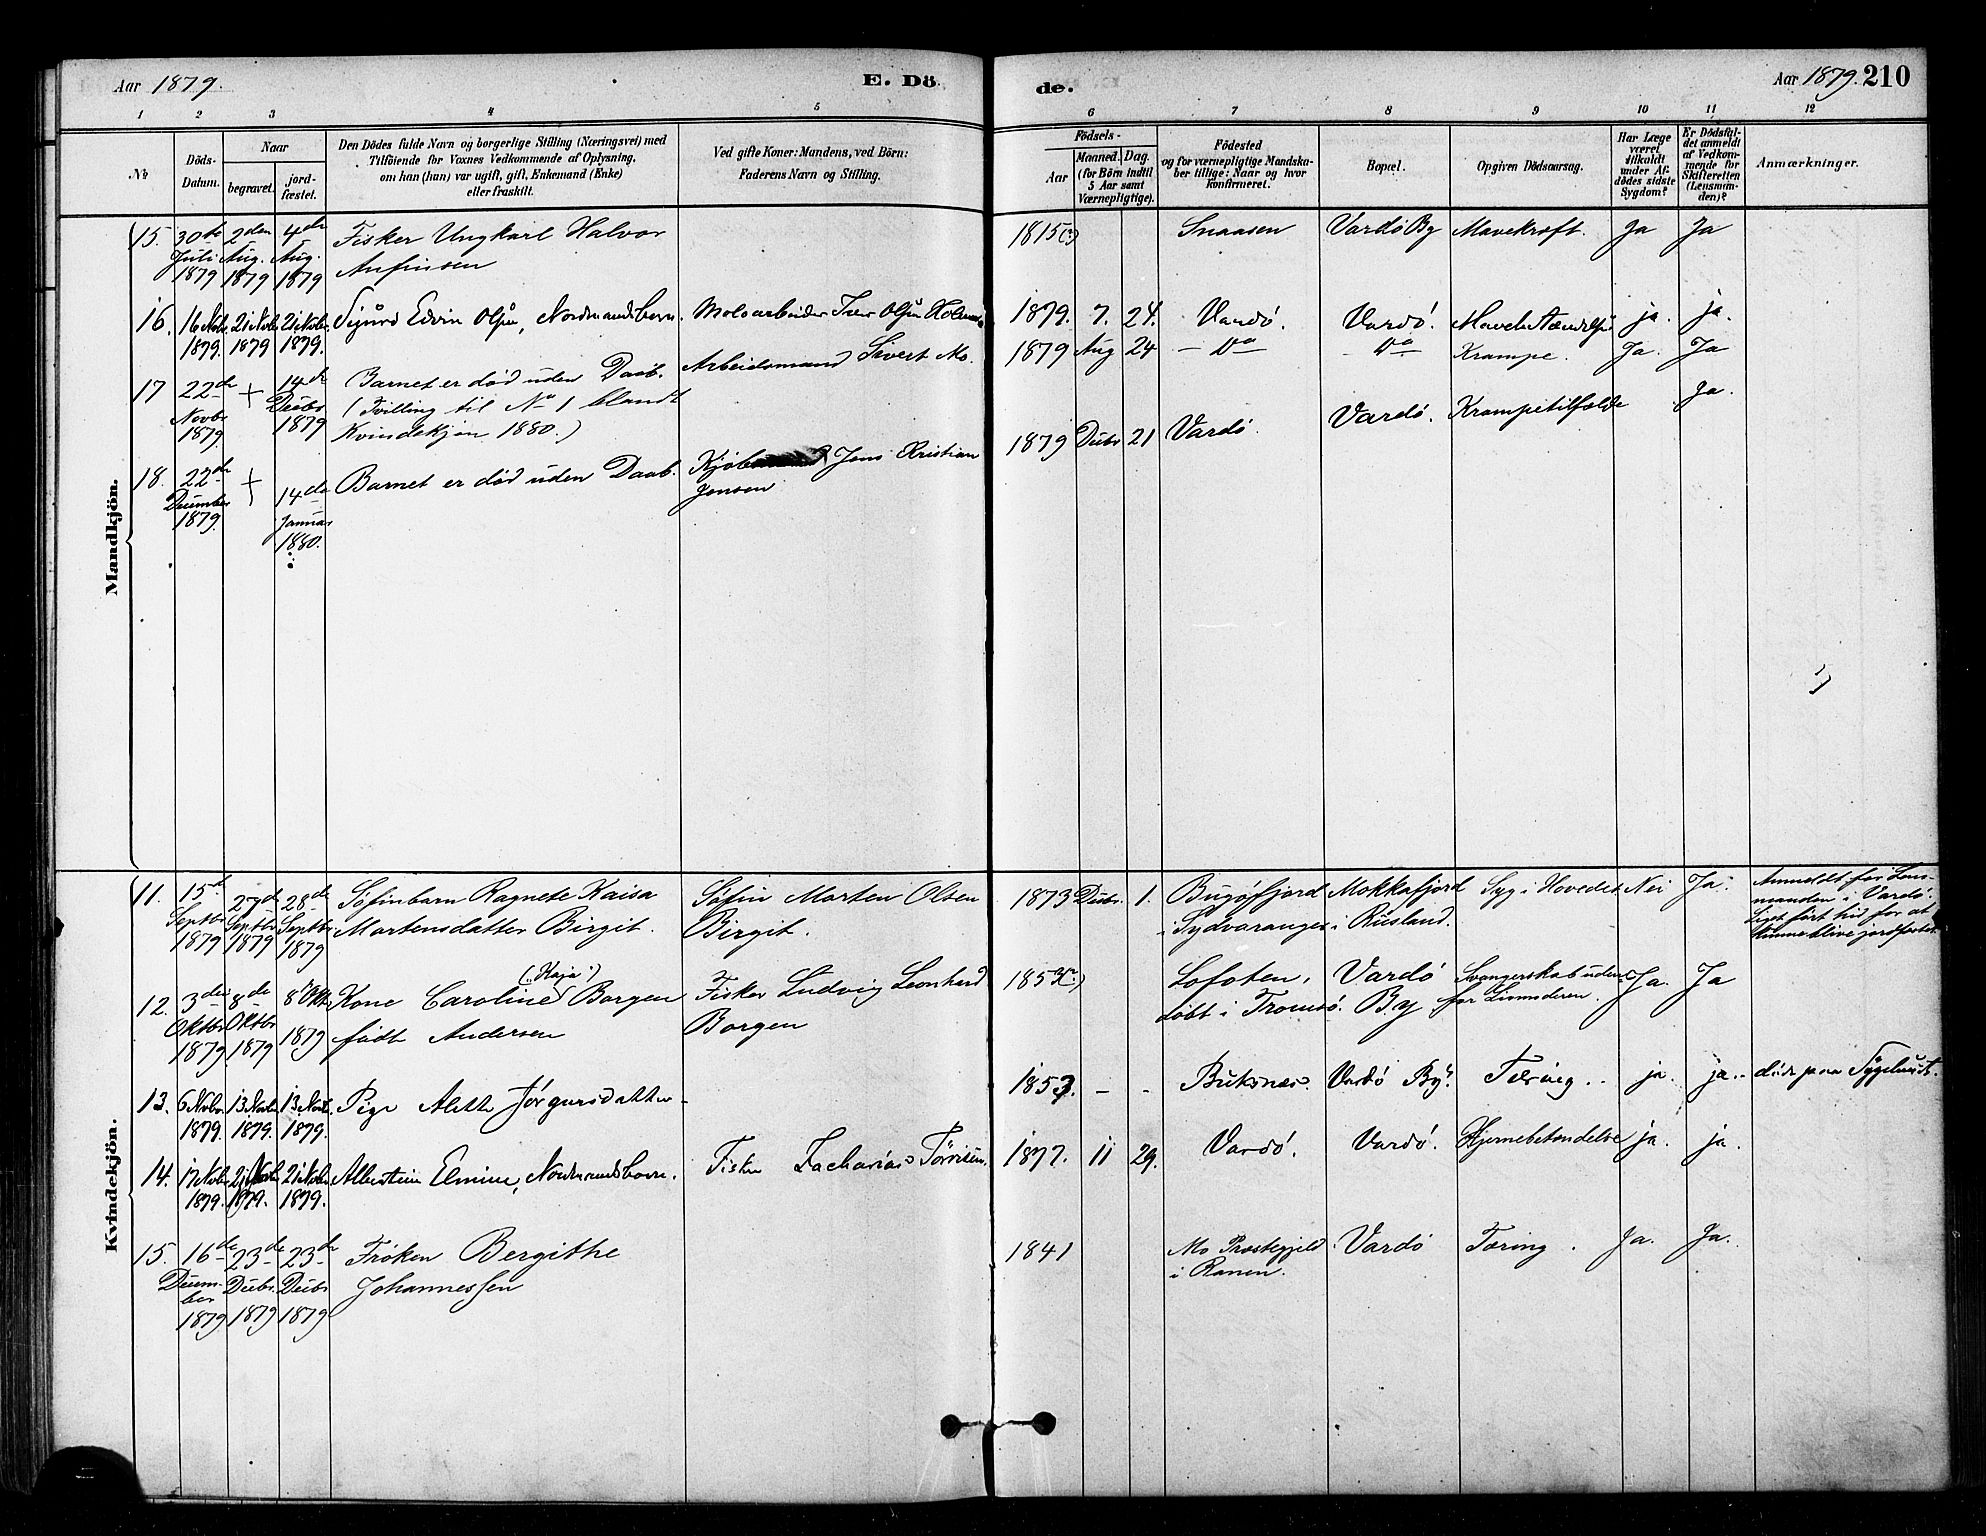 Aar 1879.
E. Döde.
Aar 1879. 210
1 2 3 4 5 6 7 8 9 10 11 12
№
Döds-
Datum.
Naar
begravet.
jord-
fæstet.
Den Dödes fulde Navn og borgerlige Stilling (Næringsvei) med
Tilföiende for Voxnes Vedkommende af Oplysning,
om han (hun) var ugift, gift, Enkemand (Enke)
eller fraskilt.
Ved gifte Koner: Mandens, ved Börn:
Faderens Navn og Stilling.
Födsels-
Aar
Maaned. Dag.
(for Börn indtil
5 Aar samt
Værnepligtige).
Födested
og for værnepligtige Mandska-
ber tillige: Naar og hvor
konfirmeret.
Bopæl.
Opgiven Dödsaarsag.
Har Læge
været
tilkaldt
under Af-
dödes sidste
Sygdom?
Er Dödsfal-
det anmeldt
af Vedkom-
mende for
Skifteretten
(Lensman-
den)?
Anmærkninger.
Mandkjön.
15. 30te Juli 1879 2den Aug. 1879 4de Aug. 1879 Fisker Ungkarl Halvor
Anfinsen
1815(?) Snaasen Vardö By Mavekræft. Ja Ja
16. 16 Novbr 1879. 21 Novbr 1879 21 Novbr 1879. Sigurd Edvin Olsen, Nordmandsbarn. Moloarbeider Iver Olsen
1879. 7. 24. Vardö. Vardö. ja. ja.
17 22de Novbr 1879 + 14de Decbr 1879 Barnet er död uden Daab.
(Tvilling til No 1 blandt
Kvindekjön 1880.)
Arbeidsmand Sivert Mo.
1879 Aug 24 - Do - Do Krampe. Ja. Ja
18. 22de December 1879. + 14de Januar 1880. Barnet er död uden Daab. Jens Kristian
Jensen
1879 Decbr 21 Vardö. Vardö. Krampetilfælde Ja.
Kvindekjön.
11. 15de Septbr 1879 27de Septbr 1879 28de Septbr 1879 Söfinbarn Ragnete Kaisa
Martensdatter Birgit.
Söfin Morten Olsen
Birgit.
1873 Decbr. 1. Bugöfjord
i Sydvaranger
Mokkafjord
i Rusland.
Syg i Hovedet Nei Ja.
Anmeldt for Lens-
manden i Vardö.
12. 3die Oktbr 1879 8de Oktbr 1879 8 Okt 1879 Kone Caroline (: Kaja :) Borgen
födt Andersen
Fisker Ludvig Leonhard
Borgen
Lofoten,
döbt i Tromsö.
Vardö
By
Svangerskab uden-
for Livmoderen. Ja. Ja
13. 6 Novbr 1879. 13 Novbr 1879. 13 Novbr 1879. Pige Aletta Jörgensdatter
1853. - - Buksnæs. Vardö By. Tæring. ja. ja. död paa Sygehuset.
14. 17 Novbr 1879. 21 Novbr 1879. 21 Novbr 1879. Albertine Elmine, Nordmandsbarn. Fisker Zacharias
1877. 11 29. Vardö. Vardö. Hjernebetændelse ja. ja.
15. 16de Decem-
ber 1879 23de Decbr. 1879 23de Decbr 1879 Fröken Bergithe
Johannessen
1841 Mo Præstegjeld
i Ranen.
Vardö Tæring. Ja. Ja.